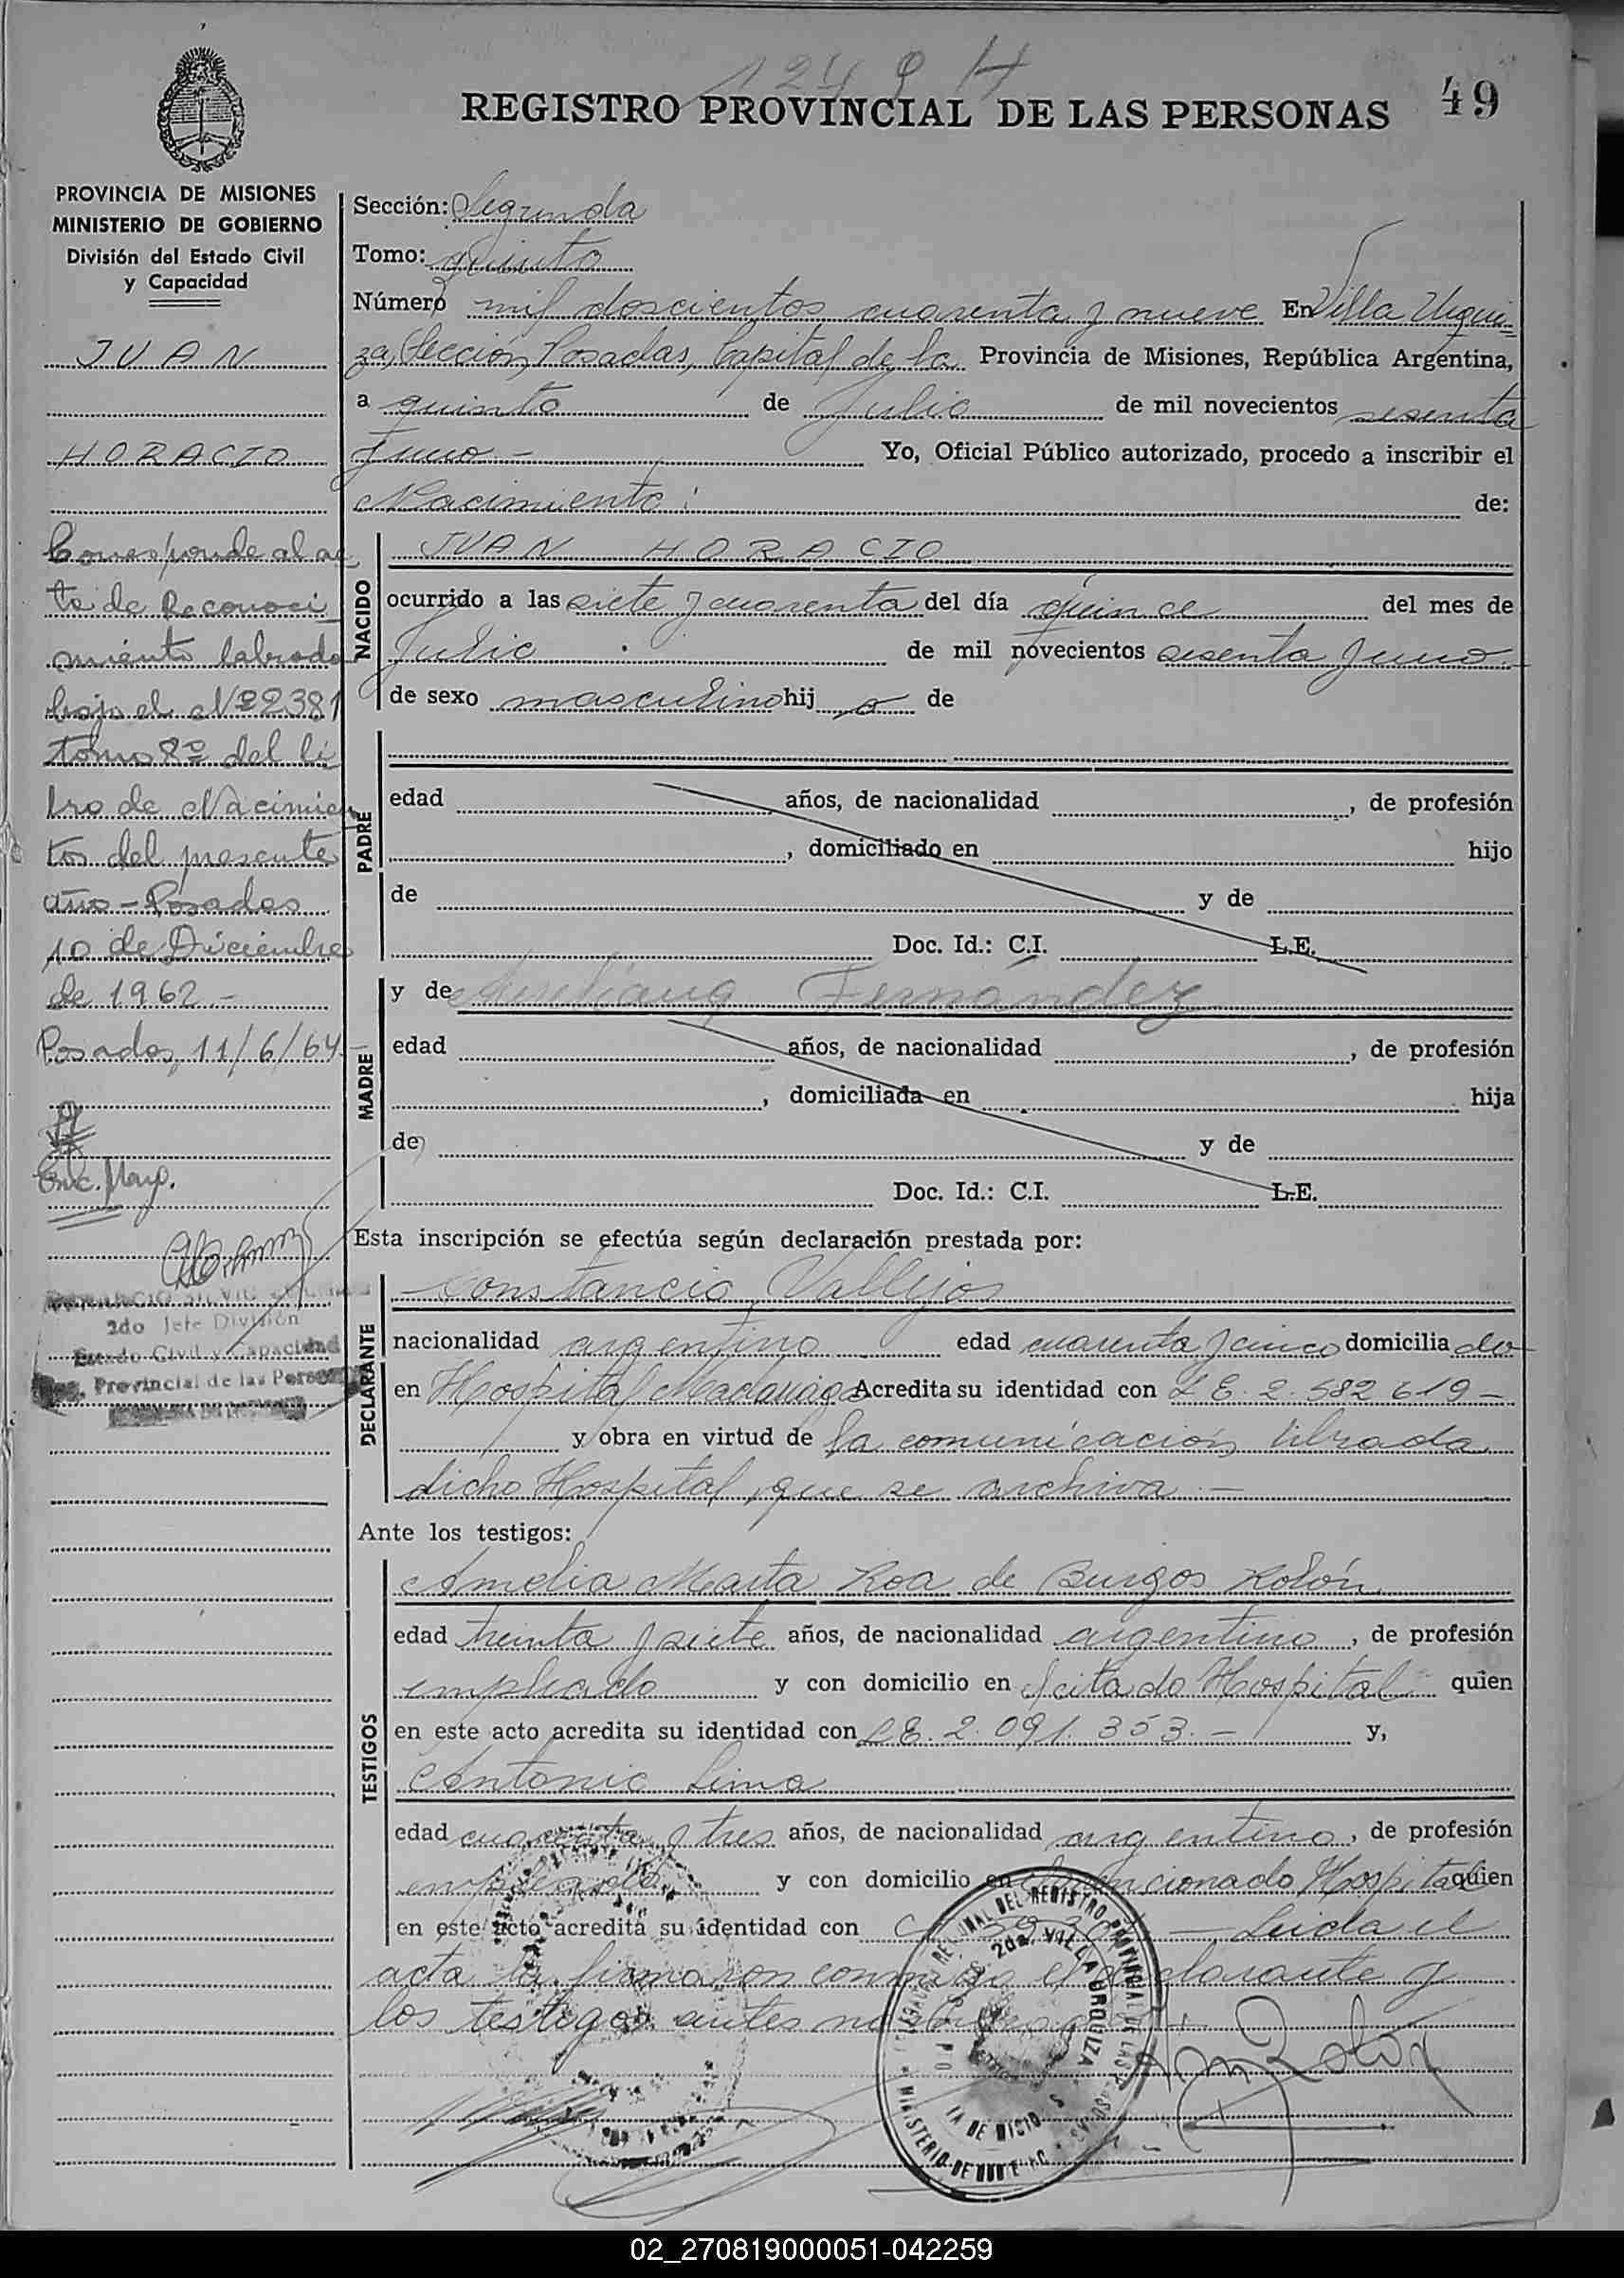 1249 H
REGISTRO PROVINCIAL DE LAS PERSONAS
49
PROVINCIA DE MISIONES
MINISTERIO DE GOBIERNO
División del Estado Civil
y Capacidad
JUAN
HORACIO
Corresponde al ac
ta de Reconoci
miento labrado
bajo el Nº 2381
tomo 8º del li
bro de Nacimien
tos del presente
año - Posadas
10 de Diciembre
de 1962.-
Posadas, 11/6/64
Enc. Mayo.
2do Jefe División
Estado Civil y Capacidad
Provincial de las Personas
Sección: Segunda
Tomo: quinto
Número mil doscientos cuarenta y nueve En Villa Urqui-
za, Sección Posadas, Capital de la Provincia de Misiones, República Argentina,
a quinto de Julio de mil novecientos sesenta
y uno.- Yo, Oficial Público autorizado, procedo a inscribir el
Nacimiento: de:
NACIDO
JUAN HORACIO
ocurrido a las siete y cuarenta del día quince del mes de
Julio de mil novecientos sesenta y uno.
de sexo masculino hij o de
PADRE
edad años, de nacionalidad , de profesión
, domiciliado en hijo
de y de
Doc. Id.: C.I. L.E.
MADRE
y de Fernández
edad años, de nacionalidad , de profesión
, domiciliada en hija
de y de
Doc. Id.: C.I. L.E.
Esta inscripción se efectúa según declaración prestada por:
DECLARANTE
Constancio Vallejos
nacionalidad argentino edad cuarenta y cinco domicilia do
en Hospital Madariaga Acredita su identidad con L E. 2. 582 619 -
y obra en virtud de la comunicación librada
dicho Hospital, que se archiva.-
Ante los testigos:
TESTIGOS
Amelia Marta Roa de Burgos Rolón
edad treinta y siete años, de nacionalidad argentino , de profesión
empleado y con domicilio en citado Hospital quien
en este acto acredita su identidad con L E. 2. 091. 353. - y,
Antonio Lima
edad cuarenta y tres años, de nacionalidad argentino , de profesión
empleado y con domicilio en mencionado Hospital quien
en este acto acredita su identidad con Leida el
acta la firmaron conmigo el declarante y
los testigos antes
2da. VILLA URQUIZA
02_270819000051-042259